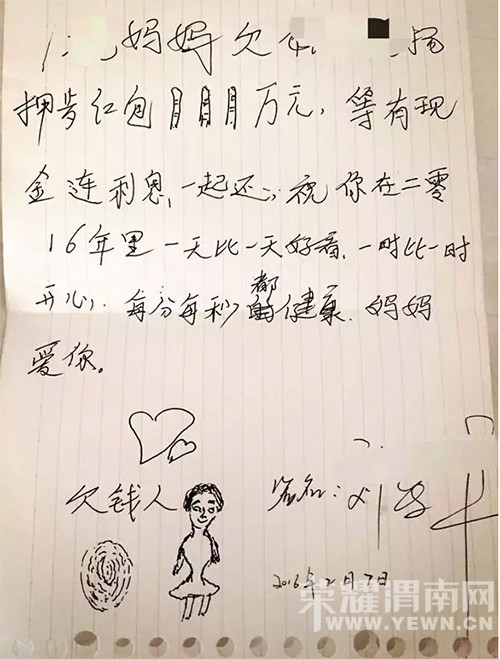 妈妈欠
押岁红包 万元，等有现
金连利息，一起还，祝你在二零
16年里一天比一天好看，一时比一时
开心，每分每秒都健康，妈妈
爱你。
欠钱人
签名：
2016年2月7日
荣耀渭南网
WWW.YEWN.CN